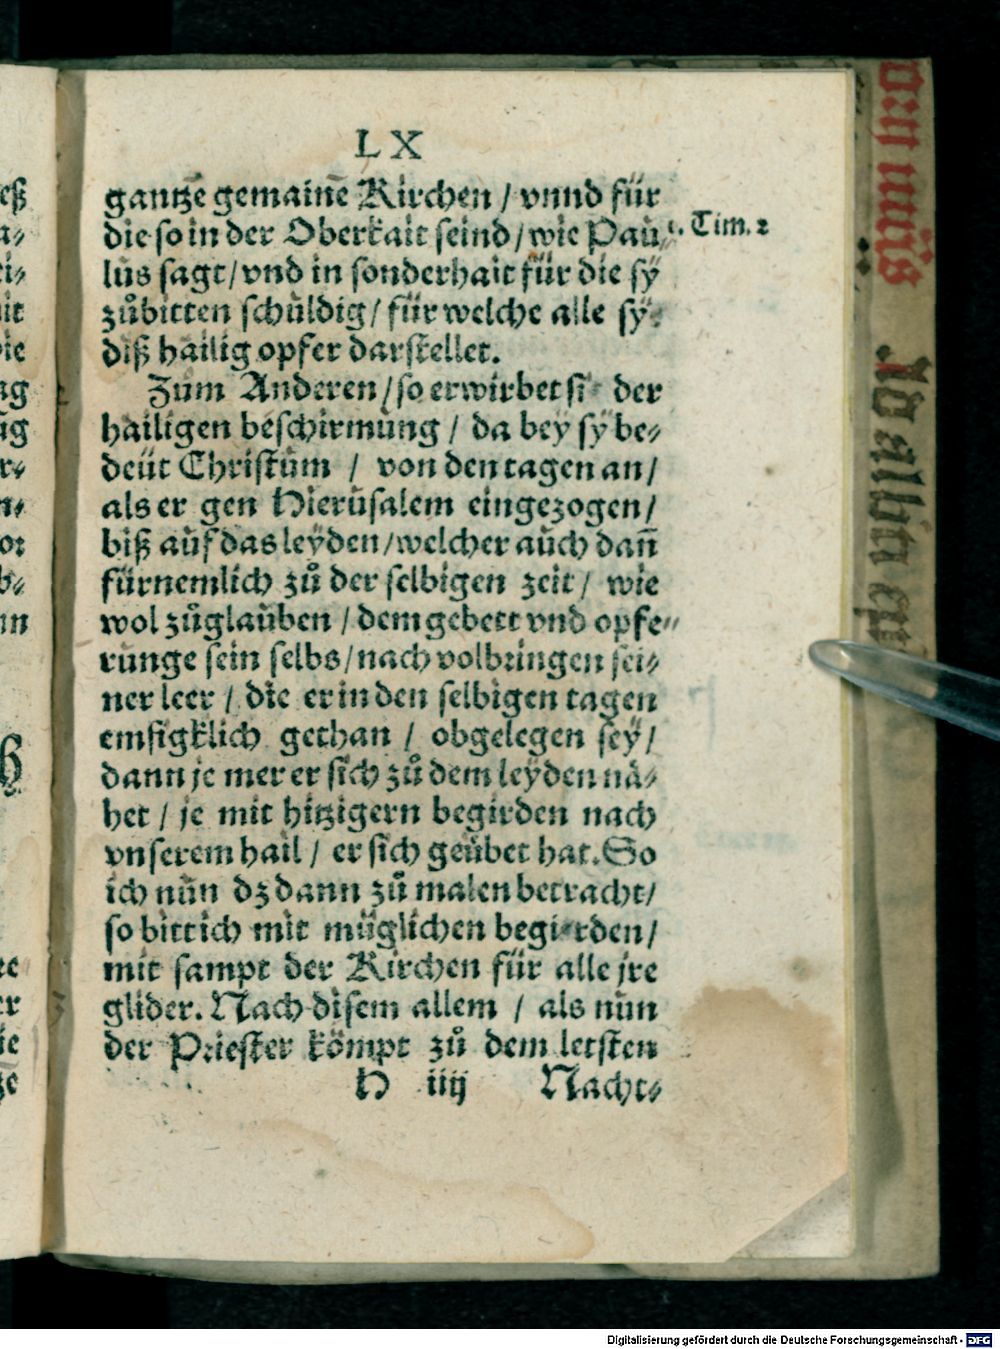 LX
gantzē gemainē Kirchen / vnnd für
die so in der Oberkait seind / wie Paů⸗ 1. Tim. 2
lůs sagt / vnd in sonderhait für die sÿ
zůbitten schůldig / für welche alle sÿ
diß hailig opfer darstellet.
Zům Anderen / so erwirbet si der
hailigen beschirmůng / da bey sÿ be⸗
deüt Christům / von den tagen an /
als er gen Hierůsalem eingezogen /
biß aůf das leyden / welcher aůch dañ
fürnemlich zů der selbigen zeit / wie
wol zůglaůben / dem gebett vnd opfe⸗
růnge sein selbs / nach volbringen sei⸗
ner leer / die er in den selbigen tagen
emsigklich gethan / obgelegen seÿ /
dann je mer er sich zů dem leyden nä⸗
het / je mit hitzigern begirden nach
vnserem hail / er sich geübet hat. So
ich nůn dz dann zů malen betracht /
so bitt ich mit müglichen begirden /
mit sampt der Kirchen für alle jre
glider. Nach disem allem / als nůn
der Priester kömpt zů dem letsten
H iiij Nacht⸗
eß
a⸗
ei⸗
it
ie
ag
ůg
r⸗
n⸗
or
b⸗
nn
te
er
ie
tzē
Digitalisierung gefördert durch die Deutsche Forschungsgemeinschaft - DFG